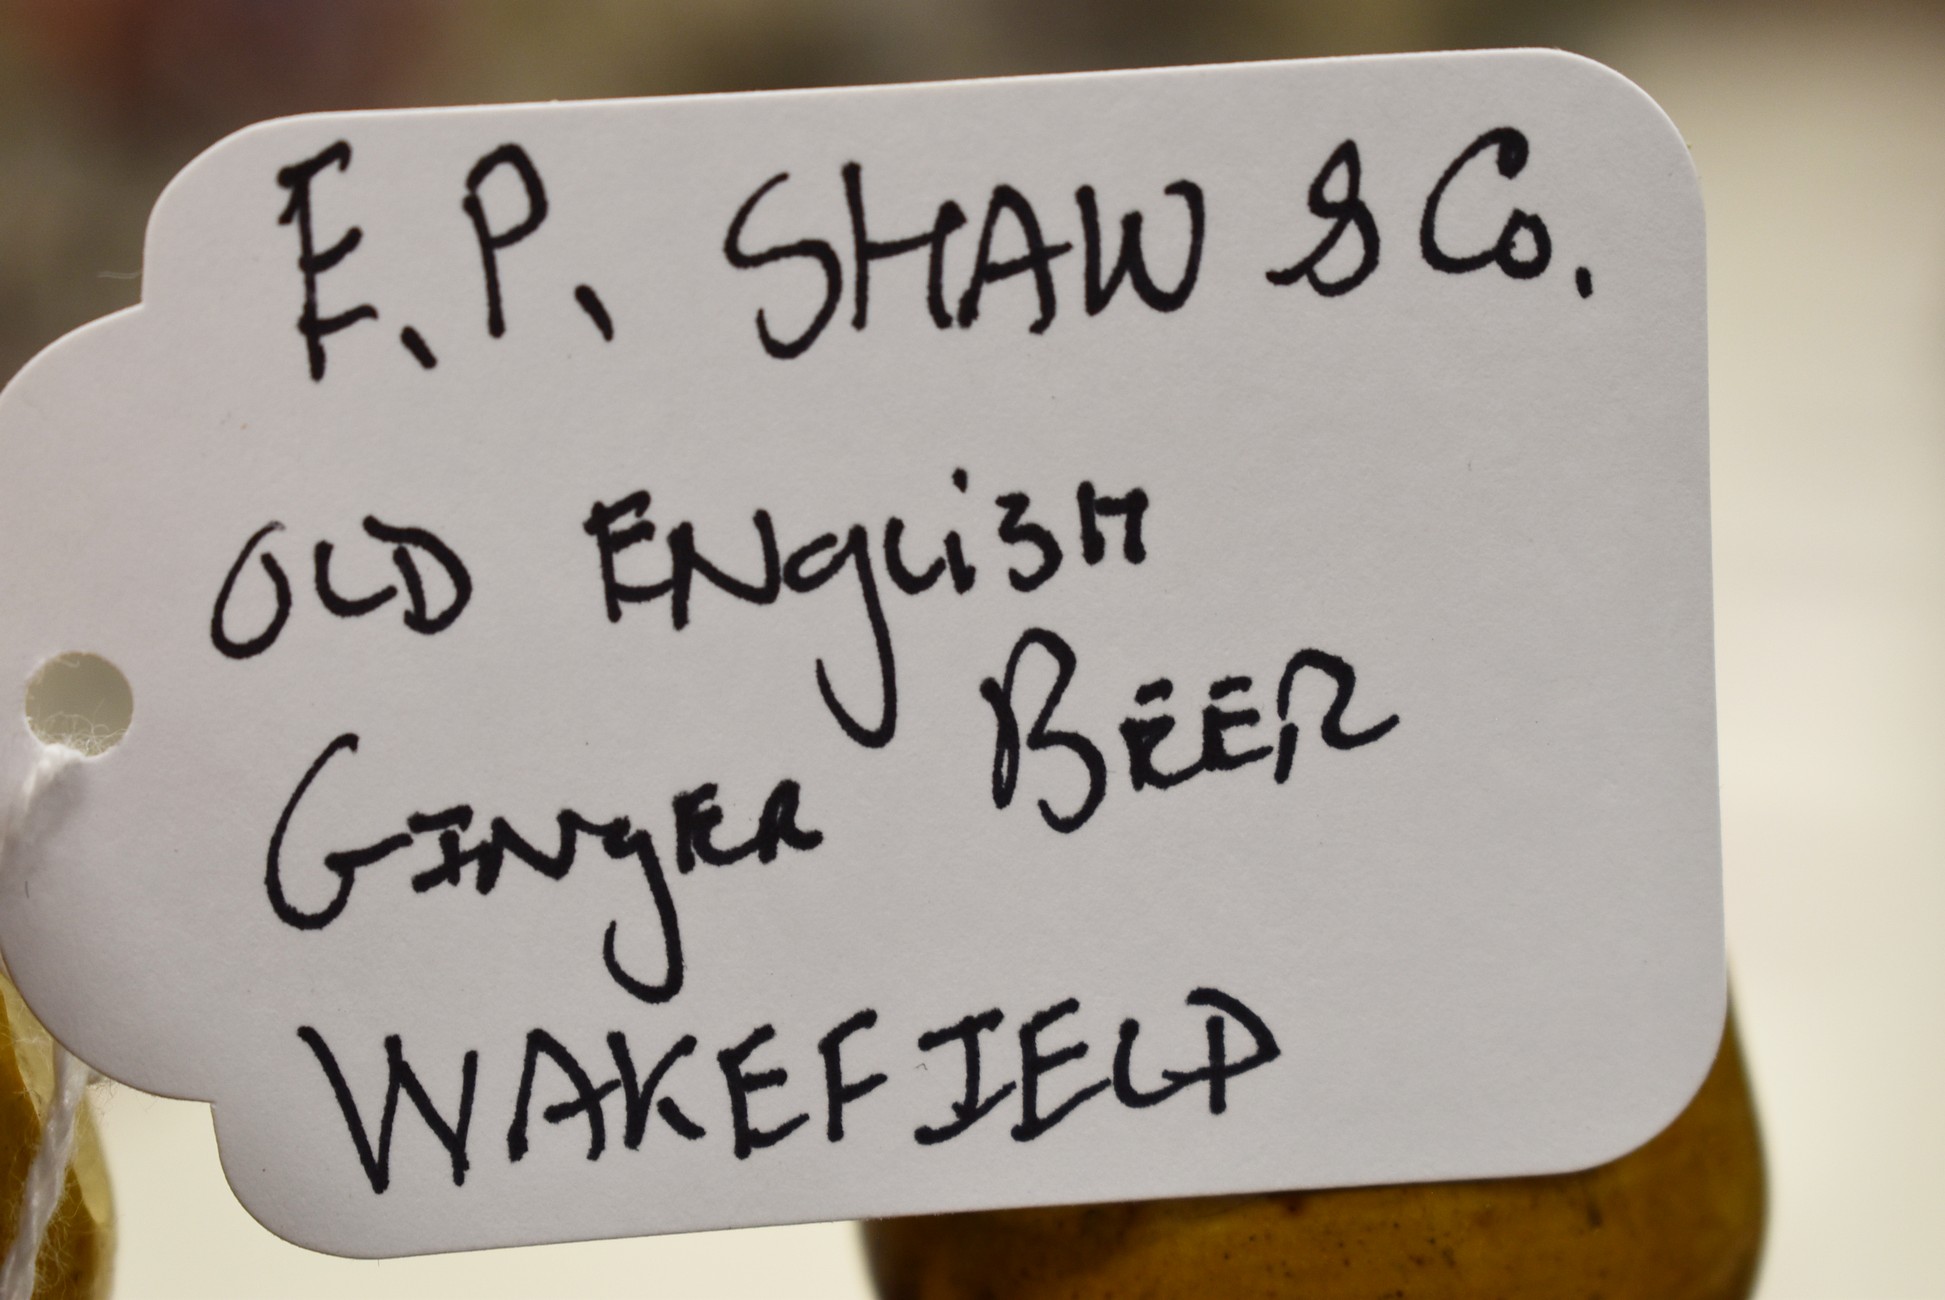 E.P. SHAW & Co.
OLD ENgLiSH
GINgER BEER
WAKEFIELD